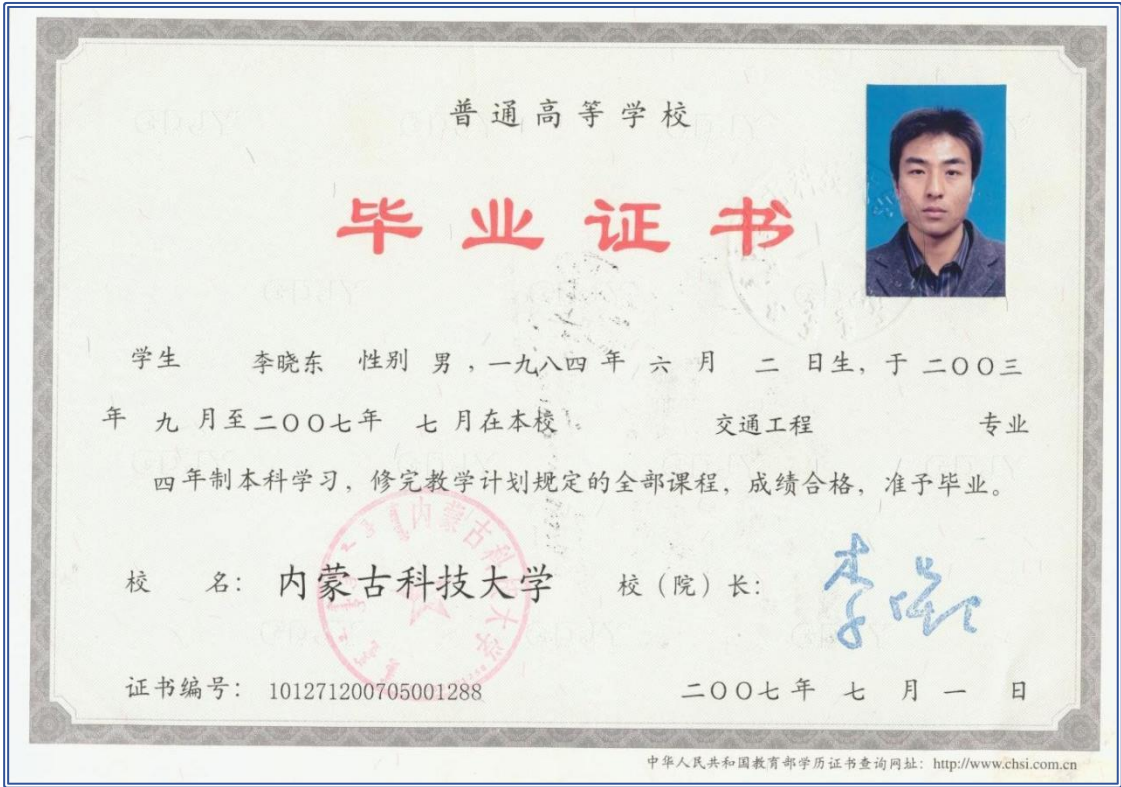 普通高等学校
毕业证书
学生 李晓东 性别 男,一九八四 年 六 月 二 日生,于 二〇〇三
年 九 月至二〇〇七年 七 月在本校 交通工程 专业
四年制本科学习,修完教学计划规定的全部课程,成绩合格,准予毕业。
校 名: 内蒙古科技大学 校(院)长:
内蒙古科技大学
证书编号: 101271200705001288 二〇〇七年 七 月 一 日
中华人民共和国教育部学历证书查询网址: http://www.chsi.com.cn